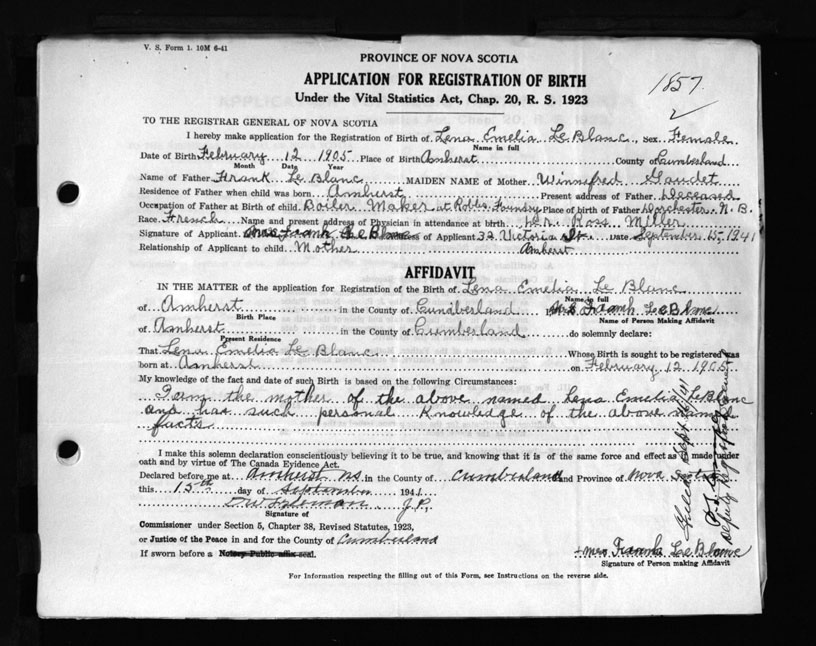 V. S. Form 1. 10M 6-41
PROVINCE OF NOVA SCOTIA
APPLICATION FOR REGISTRATION OF BIRTH
1857.
Under the Vital Statistics Act, Chap. 20, R. S. 1923
TO THE REGISTRAR GENERAL OF NOVA SCOTIA
I hereby make application for the Registration of Birth of Lena Emelia Le Blanc, sex Female
Name in full
Date of Birth February 12 1905 Place of Birth Amherst County of Cumberland
Month Date Year
Name of Father Frank Le Blanc MAIDEN NAME of Mother Winnifred Gaudet
Residence of Father when child was born Amherst Present address of Father Deceased
Occupation of Father at Birth of child Boiler Maker at Robbs Foundry Place of birth of Father Dorchester N. B.
Race French Name and present address of Physician in attendance at birth Dr. Ross Miller
Signature of Applicant Mrs Frank Le Blanc Address of Applicant 32 Victoria St. Date September 15, 1941
Relationship of Applicant to child Mother Amherst
AFFIDAVIT
IN THE MATTER of the application for Registration of the Birth of Lena Emelia Le Blanc
Name in full
of Amherst in the County of Cumberland Mrs Frank Le Blanc
Birth Place Name of Person Making Affidavit
of Amherst in the County of Cumberland do solemnly declare:
Present Residence
That Lena Emelia Le Blanc Whose Birth is sought to be registered was
born at Amherst on February 12 1905
My knowledge of the fact and date of such Birth is based on the following Circumstances:
I am the mother of the above named Lena Emelia Le Blanc
and has such personal knowledge of the above named
facts
I make this solemn declaration conscientiously believing it to be true, and knowing that it is of the same force and effect as if made under
oath and by virtue of The Canada Evidence Act.
Declared before me at Amherst NS in the County of Cumberland and Province of Nova Scotia
this 15th day of September 1941
J.P.
Signature of
Commissioner under Section 5, Chapter 38, Revised Statutes, 1923,
or Justice of the Peace in and for the County of Cumberland
If sworn before a Notary Public affix seal.
Mrs Frank Le Blanc
Signature of Person making Affidavit
For Information respecting the filling out of this Form, see Instructions on the reverse side.